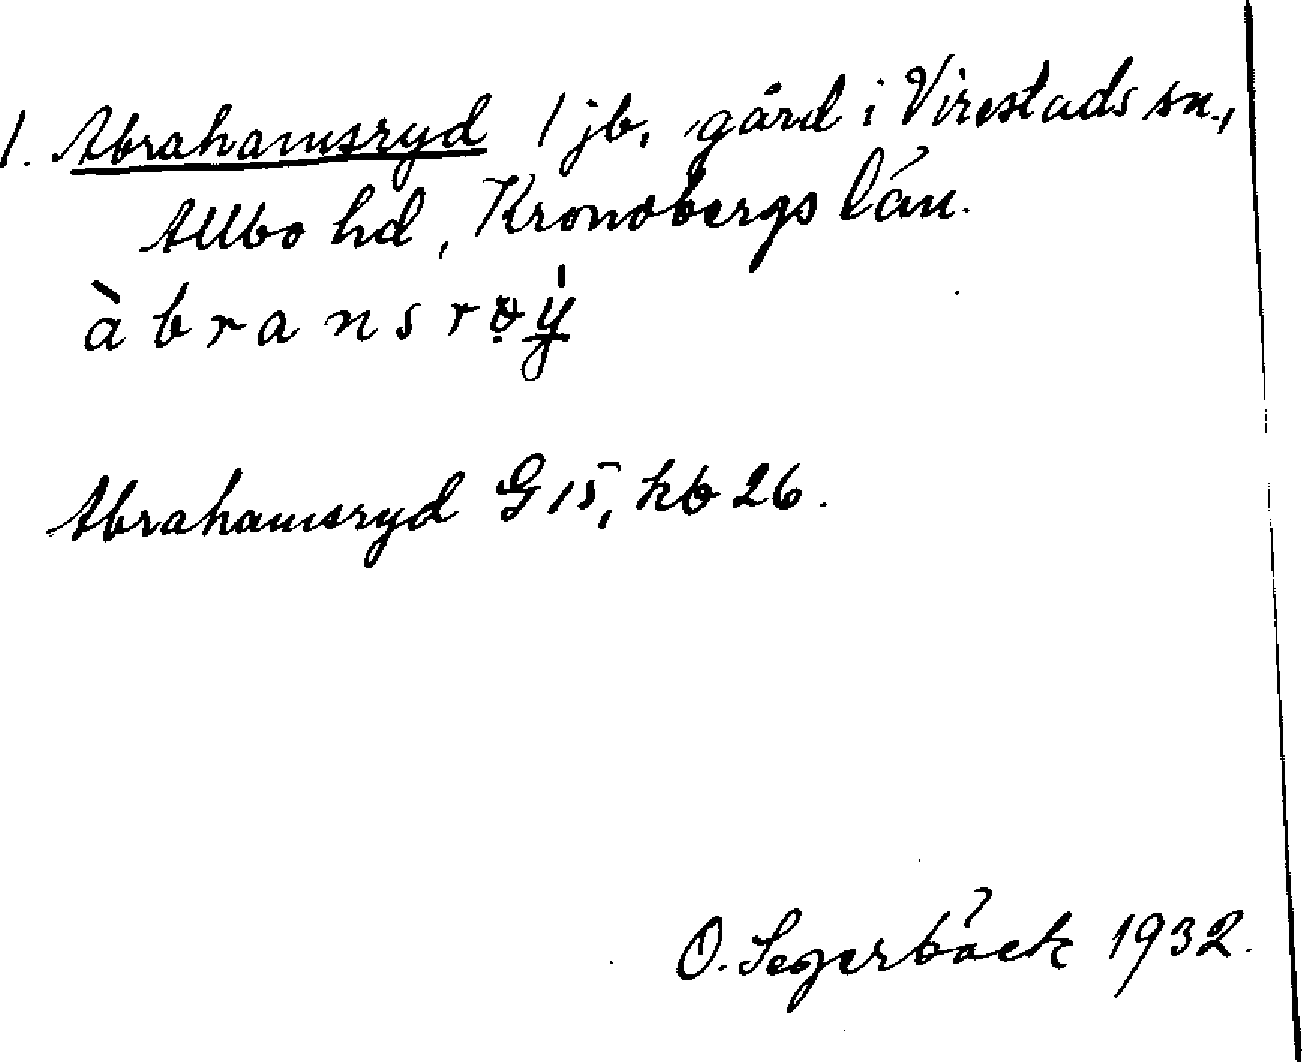 1. Abrahamsryd 1 jb, gård i Virestads sn.,
Allbo hd, Kronobergs län.
àbransrøý
Abrahamsryd G 15, kb 26.
O. Segerbäck 1932.